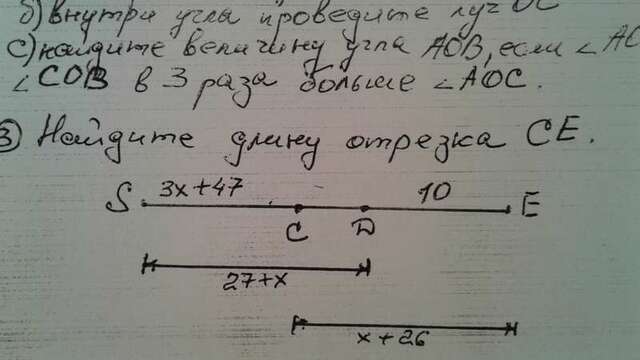 б) внутри угла проведите луч OC
c) найдите величину угла AOB, если ∠AO
∠COB в 3 раза больше ∠AOC.
3) Найдите длину отрезка CE.
S 3x+47 C D 10 E
27+x
x+26